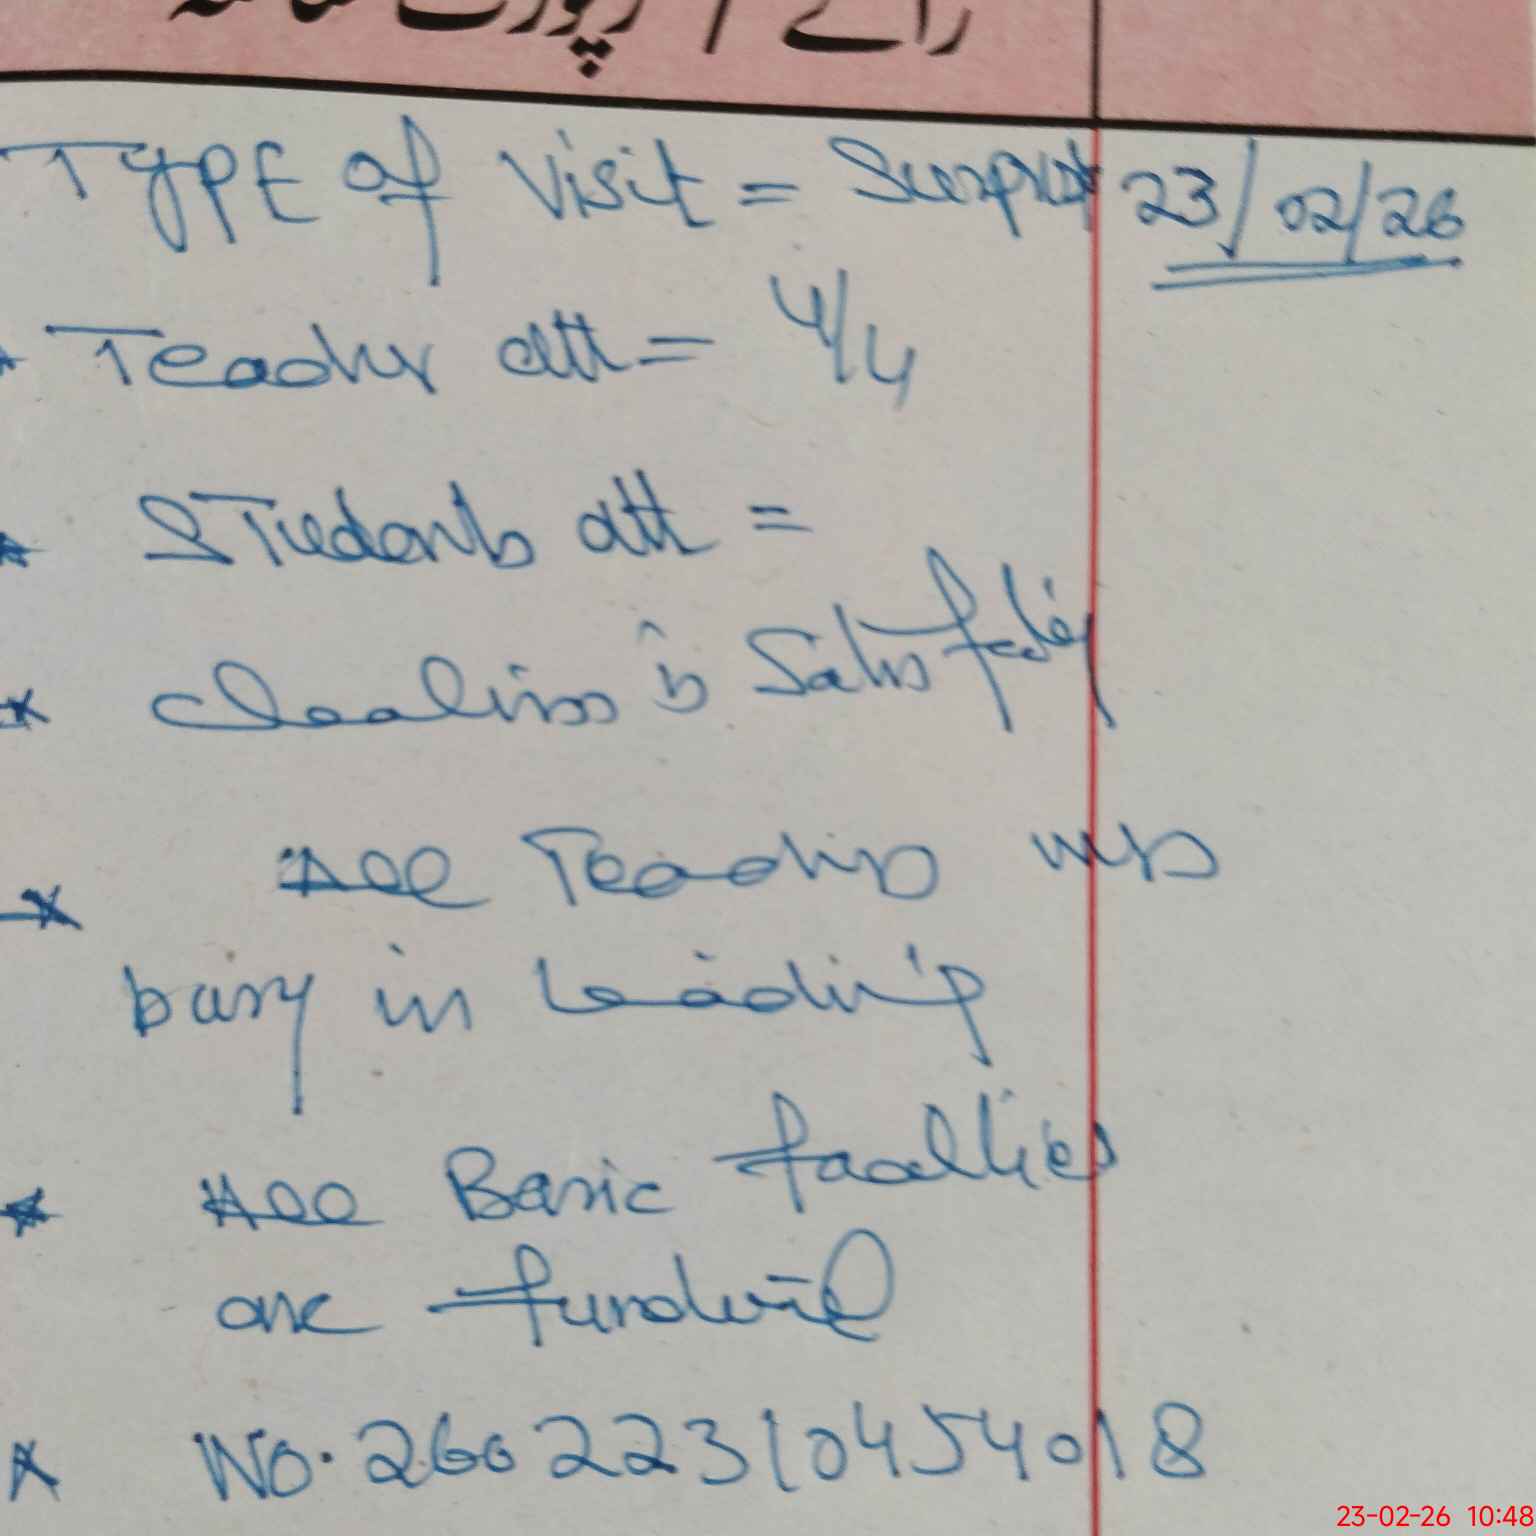 رائے / رپورٹ معائنہ
Type of Visit = Surprise 23/02/26
Teacher att = 4/4
Students att =
Cleanliness is Satisfactory
All Teachers were
busy in teaching
All Basic facilities
are functional
No. 26022310454018
23-02-26 10:48